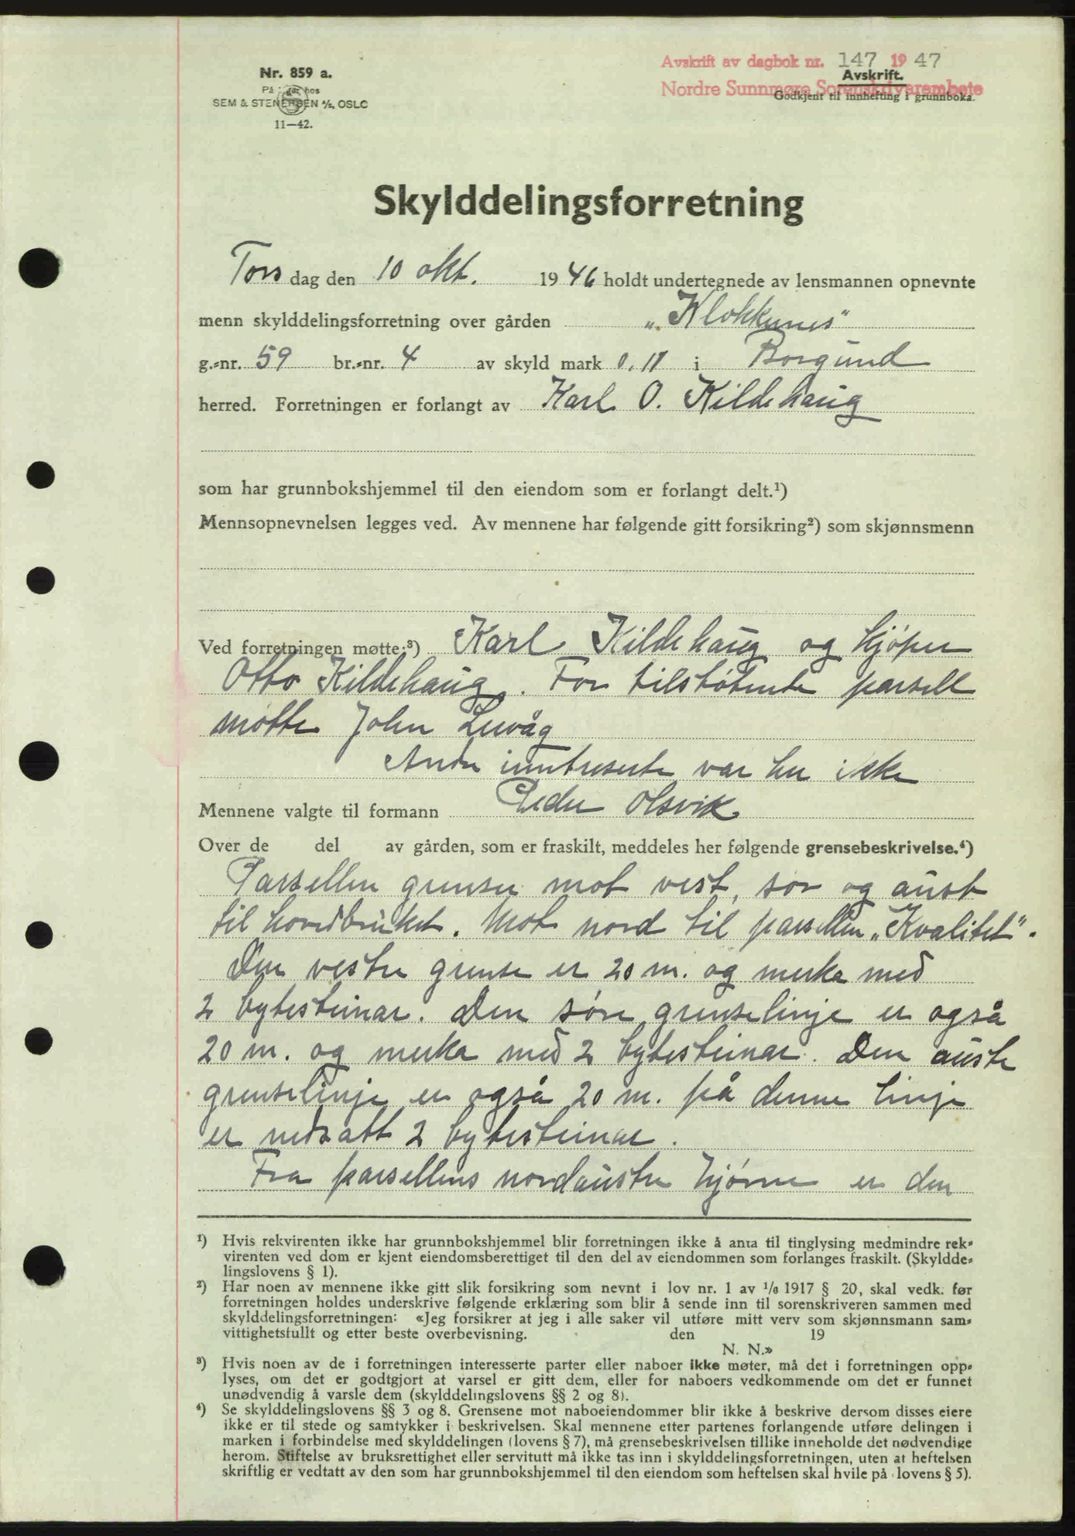 Nr. 859 a.
SEM & STENERSEN A/S, OSLO
11—42.
Avskrift av dagbok nr. 147 1947
Avskrift.
Nordre Sunnmøre Sorenskrivarembete
Godkjent til innhefting i grunnboka.
Skylddelingsforretning
Tors dag den 10 okt. 1946 holdt undertegnede av lensmannen opnevnte
menn skylddelingsforretning over gården „Klokkenes“
g.-nr. 59 br.-nr. 4 av skyld mark 0,11 i Borgund
herred. Forretningen er forlangt av Karl O. Kildehaug
som har grunnbokshjemmel til den eiendom som er forlangt delt.¹)
Mennsopnevnelsen legges ved. Av mennene har følgende gitt forsikring²) som skjønnsmenn
Ved forretningen møtte:³) Karl Kildehaug og kjøper
Otto Kildehaug. For tilstøtende parsell
møtte John Levåg
Andre interreserte var her ikke
Mennene valgte til formann Peder Olsvik
Over de del av gården, som er fraskilt, meddeles her følgende grensebeskrivelse.⁴)
Parsellen grenser mot vest, sør og aust
til hovedbruket. Mot nord til parsellen „Kvalitet“.
Den vestre grense er 20 m. og merka med
2 bytesteinar. Den søre grenselinje er også
20 m. og merka med 2 bytesteinar. Den austre
grenselinje er også 20 m. på denne linje
er nedsatt 2 bytesteinar.
Fra parsellens nordaustre hjørne er den
¹) Hvis rekvirenten ikke har grunnbokshjemmel blir forretningen ikke å anta til tinglysing medmindre rek-
virenten ved dom er kjent eiendomsberettiget til den del av eiendommen som forlanges fraskilt. (Skyldde-
lingslovens § 1).
²) Har noen av mennene ikke gitt slik forsikring som nevnt i lov nr. 1 av 1/6 1917 § 20, skal vedk. før
forretningen holdes underskrive følgende erklæring som blir å sende inn til sorenskriveren sammen med
skylddelingsforretningen: «Jeg forsikrer at jeg i alle saker vil utføre mitt verv som skjønnsmann sam-
vittighetsfullt og etter beste overbevisning. den 19
N. N.»
³) Hvis noen av de i forretningen interesserte parter eller naboer ikke møter, må det i forretningen opp-
lyses, om det er godtgjort at varsel er gitt dem, eller for naboers vedkommende om det er funnet
unødvendig å varsle dem (skylddelingslovens §§ 2 og 8).
⁴) Se skylddelingslovens §§ 3 og 8. Grensene mot naboeiendommer blir ikke å beskrive dersom disses eiere
ikke er til stede og samtykker i beskrivelsen. Skal mennene etter partenes forlangende utføre delingen i
marken i forbindelse med skylddelingen (lovens § 7), må grensebeskrivelsen tillike inneholde det nødvendige
herom. Stiftelse av bruksrettighet eller servitutt må ikke tas inn i skylddelingsforretningen, uten at heftelsen
skriftlig er vedtatt av den som har grunnbokshjemmel til den eiendom som heftelsen skal hvile på (lovens § 5).